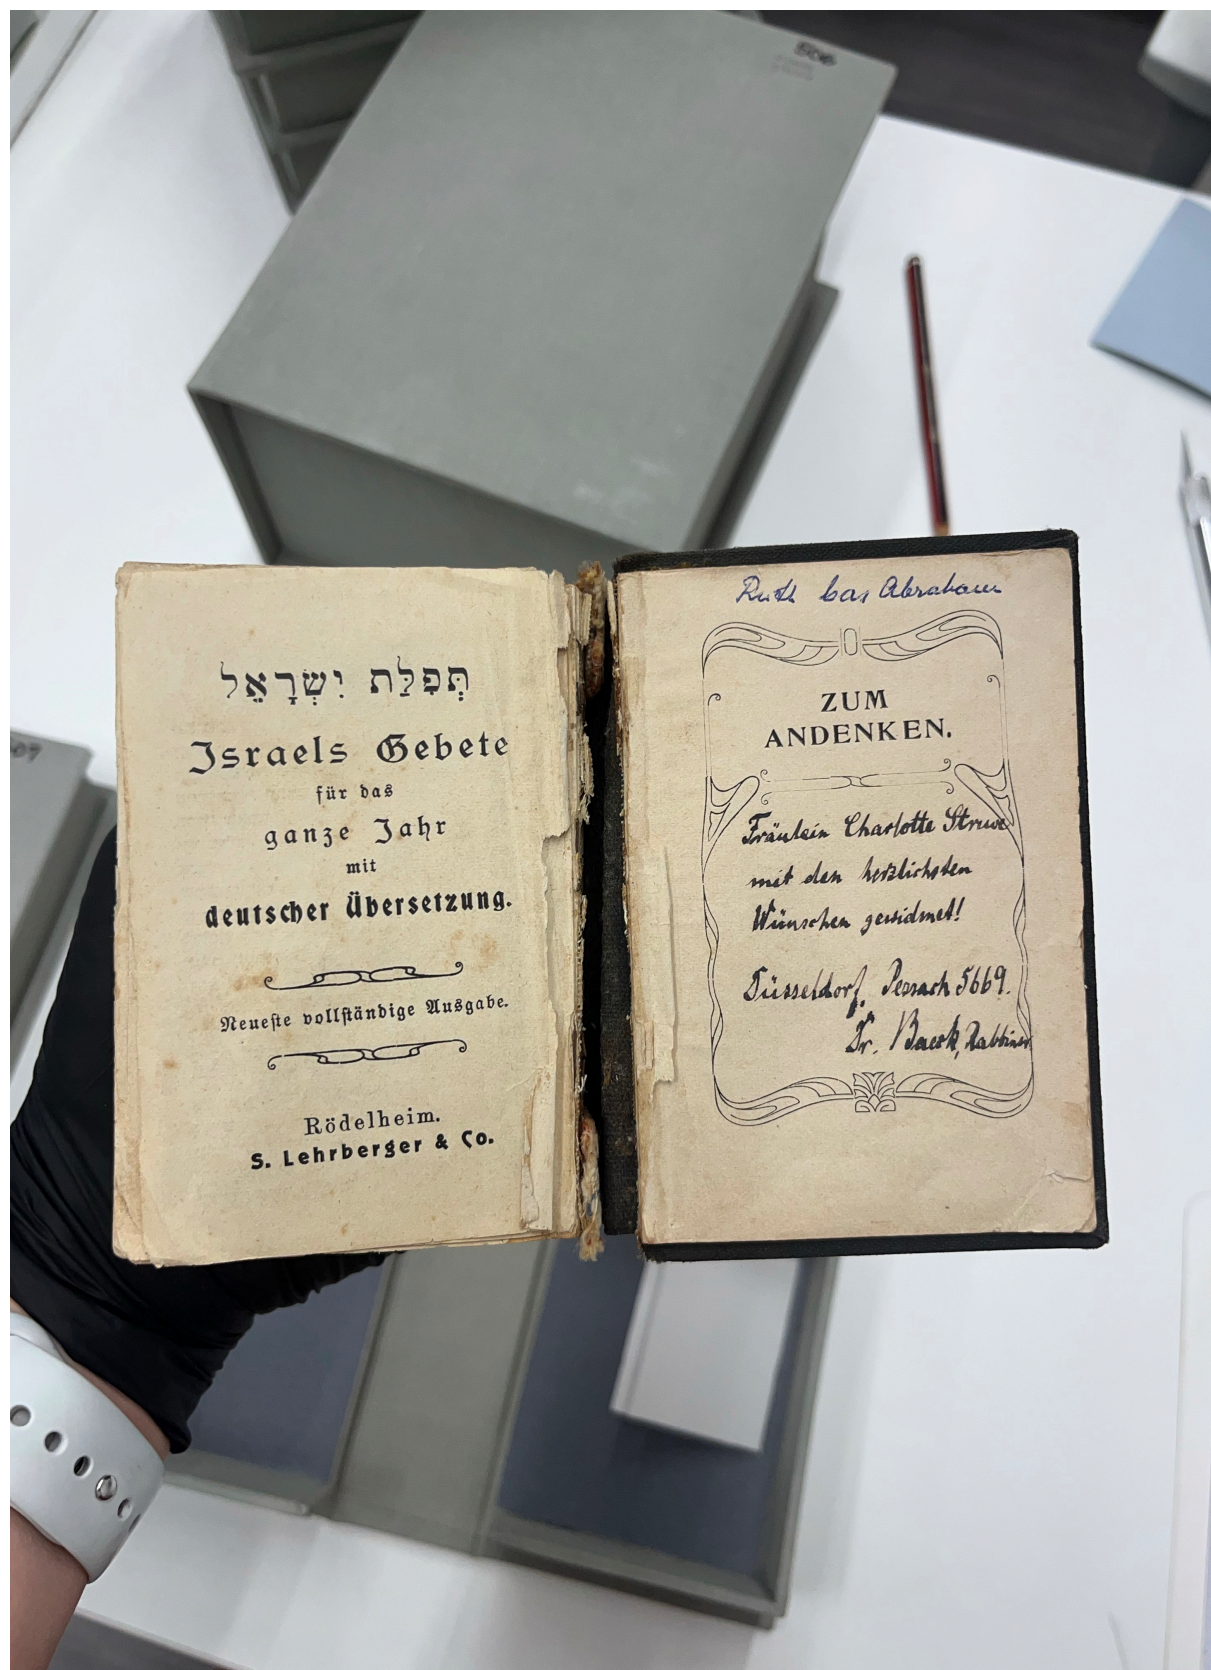 תְּפִלַּת יִשְׂרָאֵל
Israels Gebete
für das
ganze Jahr
mit
deutscher Übersetzung.
Neueste vollständige Ausgabe.
Rödelheim.
S. Lehrberger & Co.
Ruth bas Abraham
ZUM
ANDENKEN.
Fräulein Charlotte Struwe
mit den herzlichsten
Wünschen gewidmet!
Düsseldorf, Pessach 5669.
Dr. Baeck, Rabbiner
506